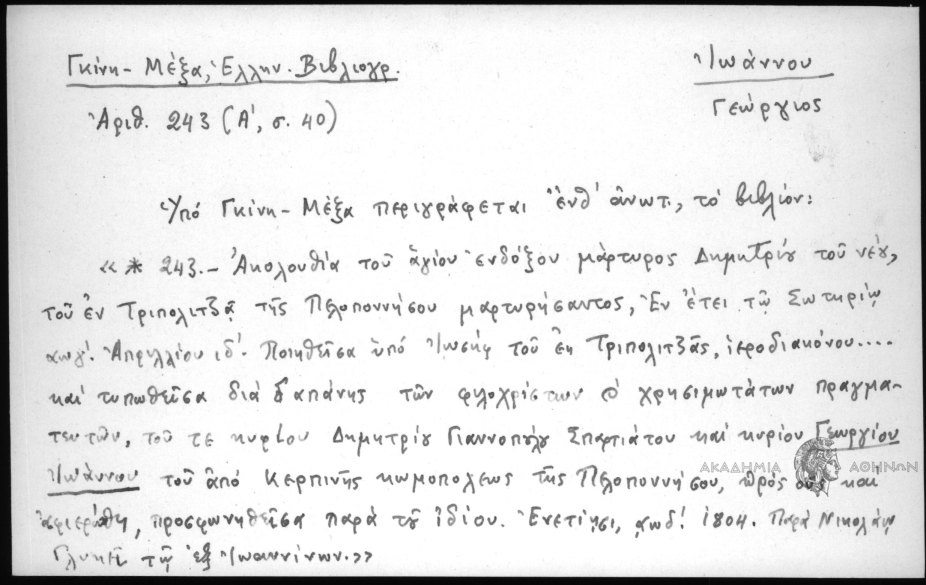 Γκίνη - Μέξα, Ἑλλην. Βιβλιογρ.
Ἰωάννου
Γεώργιος
Ἀριθ. 243 (Α', σ. 40)
Ὑπό Γκίνη - Μέξα περιγράφεται ἔνθ' ἄνωτ., τό βιβλίον:
« * 243. - Ἀκολουθία τοῦ ἁγίου ἐνδόξου μάρτυρος Δημητρίου τοῦ νέου,
τοῦ ἐν Τριπολιτζᾷ τῆς Πελοποννήσου μαρτυρήσαντος, Ἐν ἔτει τῷ Σωτηρίῳ
αωγ'. Ἀπριλλίου ιδ'. Ποιηθεῖσα ὑπό Ἰωσήφ τοῦ ἐκ Τριπολιτζᾶς, ἱεροδιακόνου....
καί τυπωθεῖσα διά δαπάνης τῶν φιλοχρίστων & χρησιμωτάτων πραγμα-
τευτῶν, τοῦ τε κυρίου Δημητρίου Γιαννοπούλου Σπαρτιάτου καί κυρίου Γεωργίου
Ἰωάννου τοῦ ἀπό Κερπινῆς κωμοπόλεως τῆς Πελοποννήσου, πρός οὕς καί
ἀφιερώθη, προσφωνηθεῖσα παρά τοῦ ἰδίου. Ἐνετίῃσι, αωδ'. 1804. Παρά Νικολάῳ
Γλυκεῖ τῷ ἐξ Ἰωαννίνων.»
ΑΚΑΔΗΜΙΑ ΑΘΗΝΩΝ